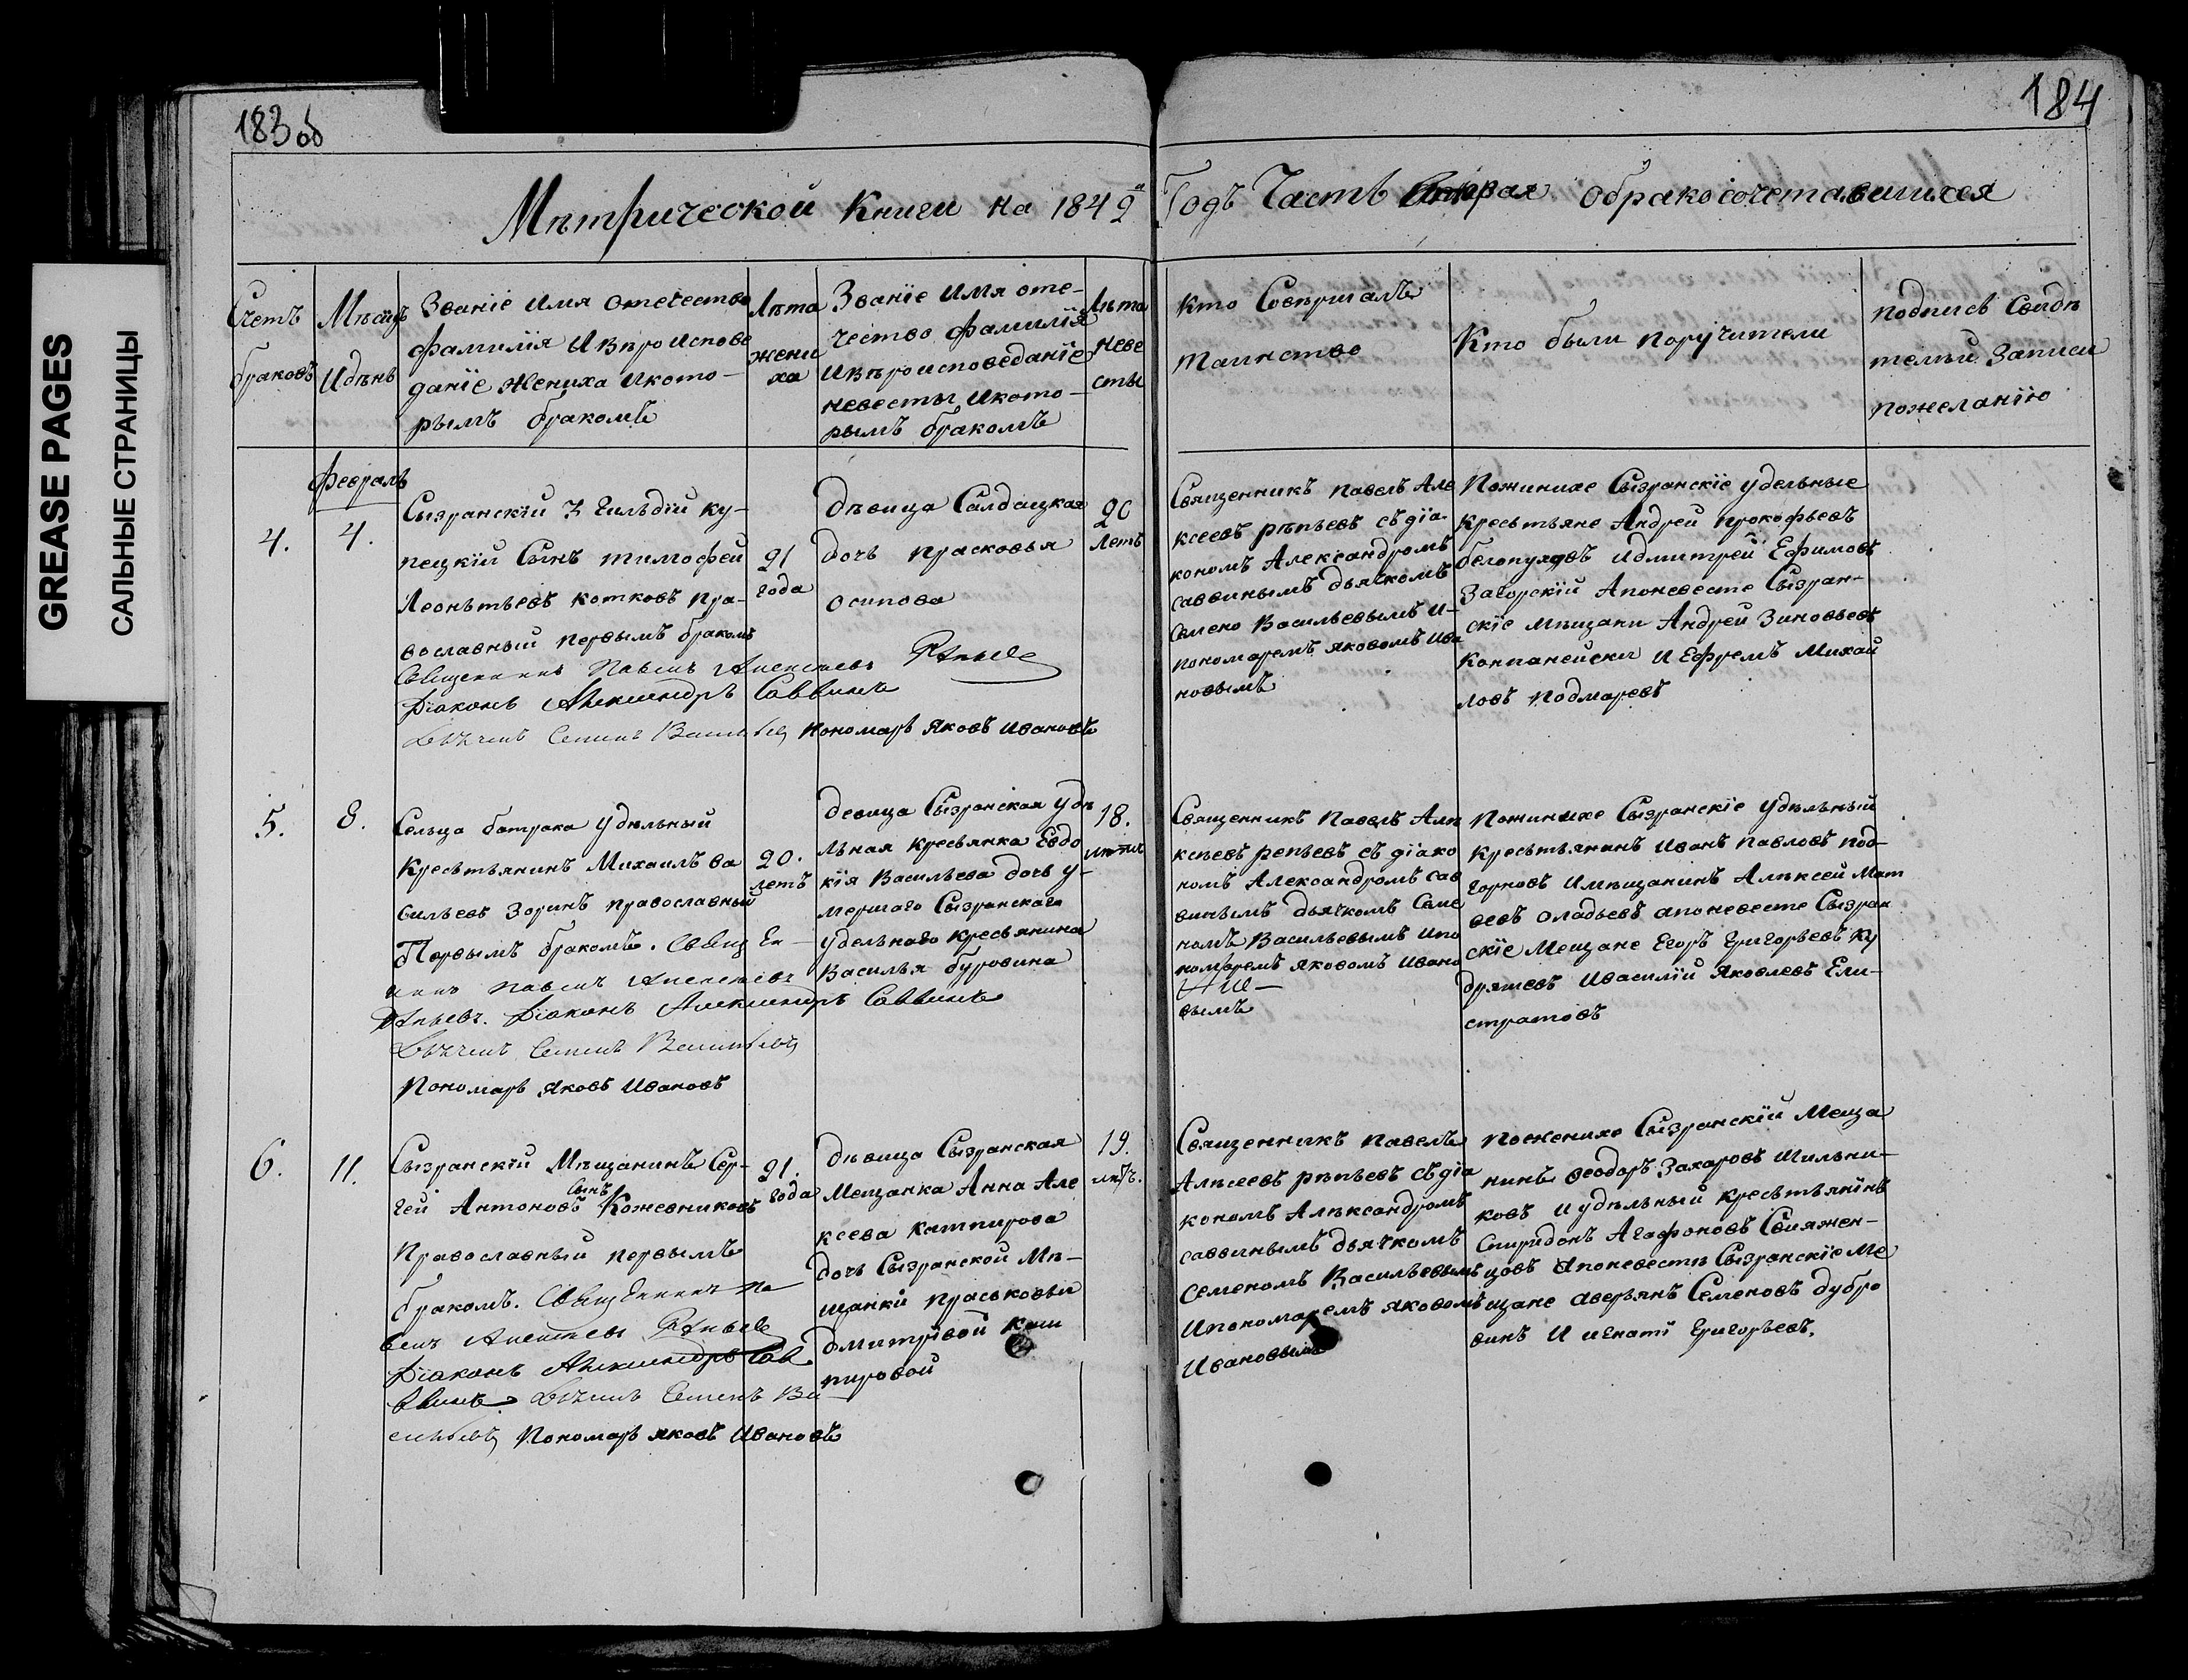 GREASE PAGES
САЛЬНЫЕ СТРАНИЦЫ
183об
184
Мѣтрической Книги на 1842й Годъ Часть Вторая обракосочетавшихся
Счетъ
браковъ
Мѣсяцъ
Идѣнь
Званіе Имя Отечество
фамилія Ивѣроиспове
даніе Жениха Икото-
рымъ бракомъ
Лѣта
жени
ха
Званіе Имя оте-
чество фамилія
Ивѣроисповеданіе
невесты Икото-
рымъ бракомъ
Лѣта
неве
сты
Кто Совѣршалъ
таинство
Кто были поручители
подпись Свидѣ
телѣй записи
пожеланію
февраль
4.
4.
Сызранскій 3 Гильдіи ку-
пецкій Сынъ тимофей
Леонътьевъ котковъ пра-
вославный первымъ бракомъ
21
года
дѣвица Салдацкая
дочь прасковья
осипова
20
летъ
Священникъ Павелъ Алексѣевъ Рѣпьевъ
Діаконъ Александръ Саввинъ
Дьячекъ Семенъ Васильевъ Пономарь Яковъ Ивановъ
Священникъ павелъ Але
ксеевъ рѣпьевъ съ діа-
кономъ Александромъ
саввинымъ дьячкомъ
Семено Васильевымъ И-
пономаремъ яковомъ Ива
новымъ
Пожинихе Сызранскіе удельные
кресьтьяне Андрей прокофьевъ
белопуховъ Идмитрей Ефимовъ
Загорскій Апоневесте Сызран-
скіе мѣщани Андрей Зиновьевъ
Компанейски И Ефремъ Михай
ловъ подмаревъ
5.
8.
Сельца батрака удѣльный
Кресьтьянинъ Михаилъ ва
сильевъ Зоринъ православный
Первымъ бракомъ. Священ-
никъ Павелъ Алексѣевъ
Рѣпьевъ. Діаконъ Александръ Саввинъ
Дьячекъ Семенъ Васильевъ
Пономарь Яковъ Ивановъ
20.
летъ
девица Сызранская удѣ
льная кресьянка Евдо
кія Васильева дочь у-
мершаго Сызранскаго
удельнаго кресьянина
Василья буровина
18.
лѣтъ
Священникъ Павелъ Але
ксѣевъ репьевъ съ діако
номъ Александромъ сав
винымъ дьячкомъ Семе
номъ Васильевымъ Ипо
номаремъ Яковомъ Ивано
вымъ
Пожинихе Сызранскіе удѣльный
кресьтьянинъ Иванъ павловъ под-
горновъ Имѣщанинъ Алѣксей Мат
вевъ оладьевъ апоневесте Сызран
скіе Мещане Егоръ Григорьевъ Ку
дряшевъ Ивасилій Яковлевъ Ели-
стратовъ
6.
11.
Сызранскій Мѣщанинъ Сер-
гей Антоновъ Сынъ Кожевниковъ
Православный первымъ
бракомъ. Священникъ Па
велъ Алексѣевъ Рѣпьевъ
Діаконъ Александръ Сав
винъ Дьячекъ Семенъ Ва
сильевъ Пономарь яковъ Ивановъ
21.
года
дѣвица Сызранская
Мещанка Анна Але
ксеева каштирова
дочь Сызранской Мѣ-
щанки праськовьи
дмитрівой Каш
тировой
19.
лѣтъ.
Священникъ павелъ
Алѣсеевъ рѣпьевъ съ діа
кономъ Алѣксандромъ
саввинымъ дьячкомъ
Семеномъ Васильевымъ
Ипономаремъ яковомъ
Ивановымъ
поженихе Сызранскій Меща
нинъ Феодоръ Захаровъ Шильни-
ковъ Иудѣльный кресьтьянинъ
Спиридонъ Агафоновъ Свияжен-
цовъ Апоневестѣ Сызранскіе Ме
щане аверьянъ Семеновъ дубро
винъ И игнаті Григорьевъ.